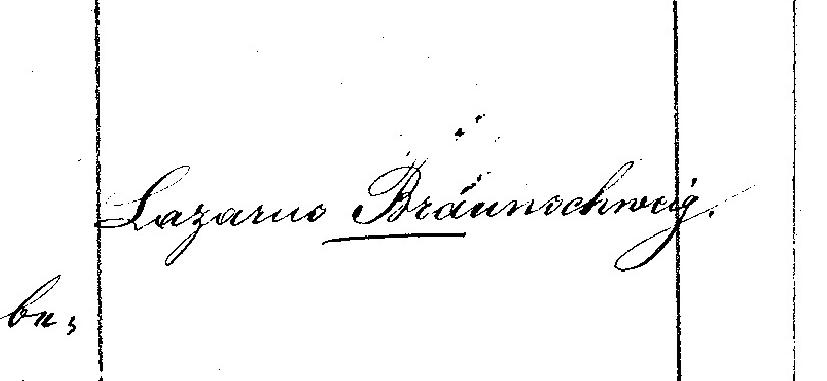 Lazarus Bräunschweig.
be,